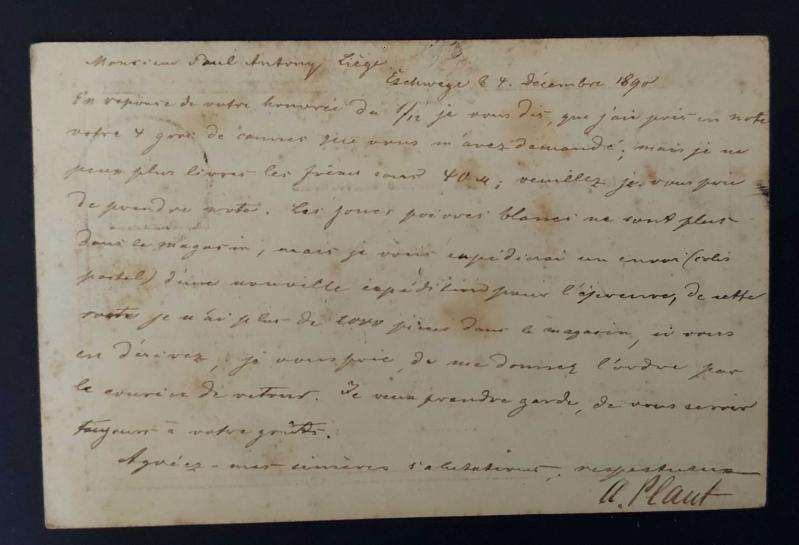 Monsieur Paul Antony Liége
Eschwege d 4. Décembre 1890
En reponse de votre honorée du 1/12 je vous dis, que j'ai pris en note
votre 4 gros de cannes que vous m'avez demandé; mais je ne
peux plus livrer les frênes sous 40 M; veuillez je vous prie
de prendre note. Les joncs poivres blancs ne sont plus
dans le magasin, mais je vous expédierai un envoi (colis
postal) d'une nouvelle expédition pour l'épreuve, de cette
sorte je n'ai plus de 2000 pièces dans le magasin, si vous
en désirez, je vous prie, de me donnez l'ordre par
le courier de retour. Je veux prendre garde, de vous servir
toujours à votre goûts.
Agréez mes sincères salutations, respectueux
A. Plaut